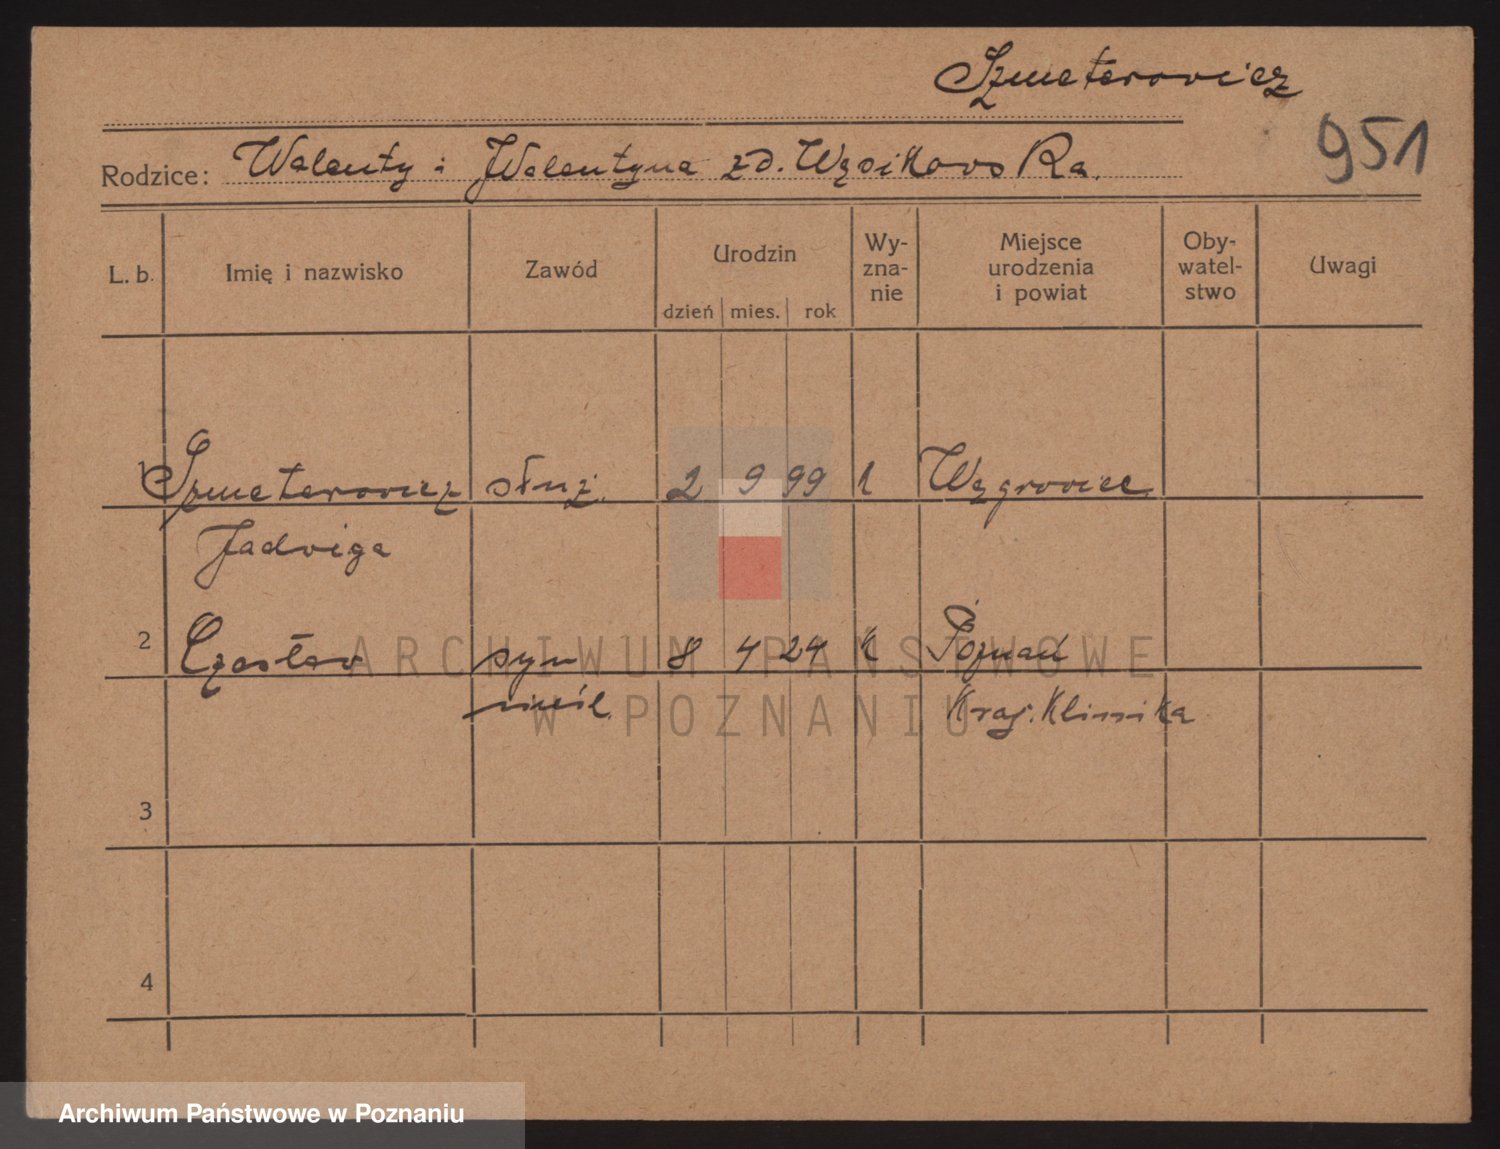 Szmeterowicz
951
Rodzice: Walenty i Walentyna zd. Węsikowska.
L. b. Imię i nazwisko Zawód Urodzin dzień mies. rok Wy-zna-nie Miejsce urodzenia i powiat Oby-watel-stwo Uwagi
1 Szmeterowicz służ. 2 9 99 k Wągrowiec
Jadwiga
2 Czesław syn 8 4 24 k Poznań
nieśl. Kraj. Klinika
3
4
ARCHIWUM PAŃSTWOWE
W POZNANIU
Archiwum Państwowe w Poznaniu